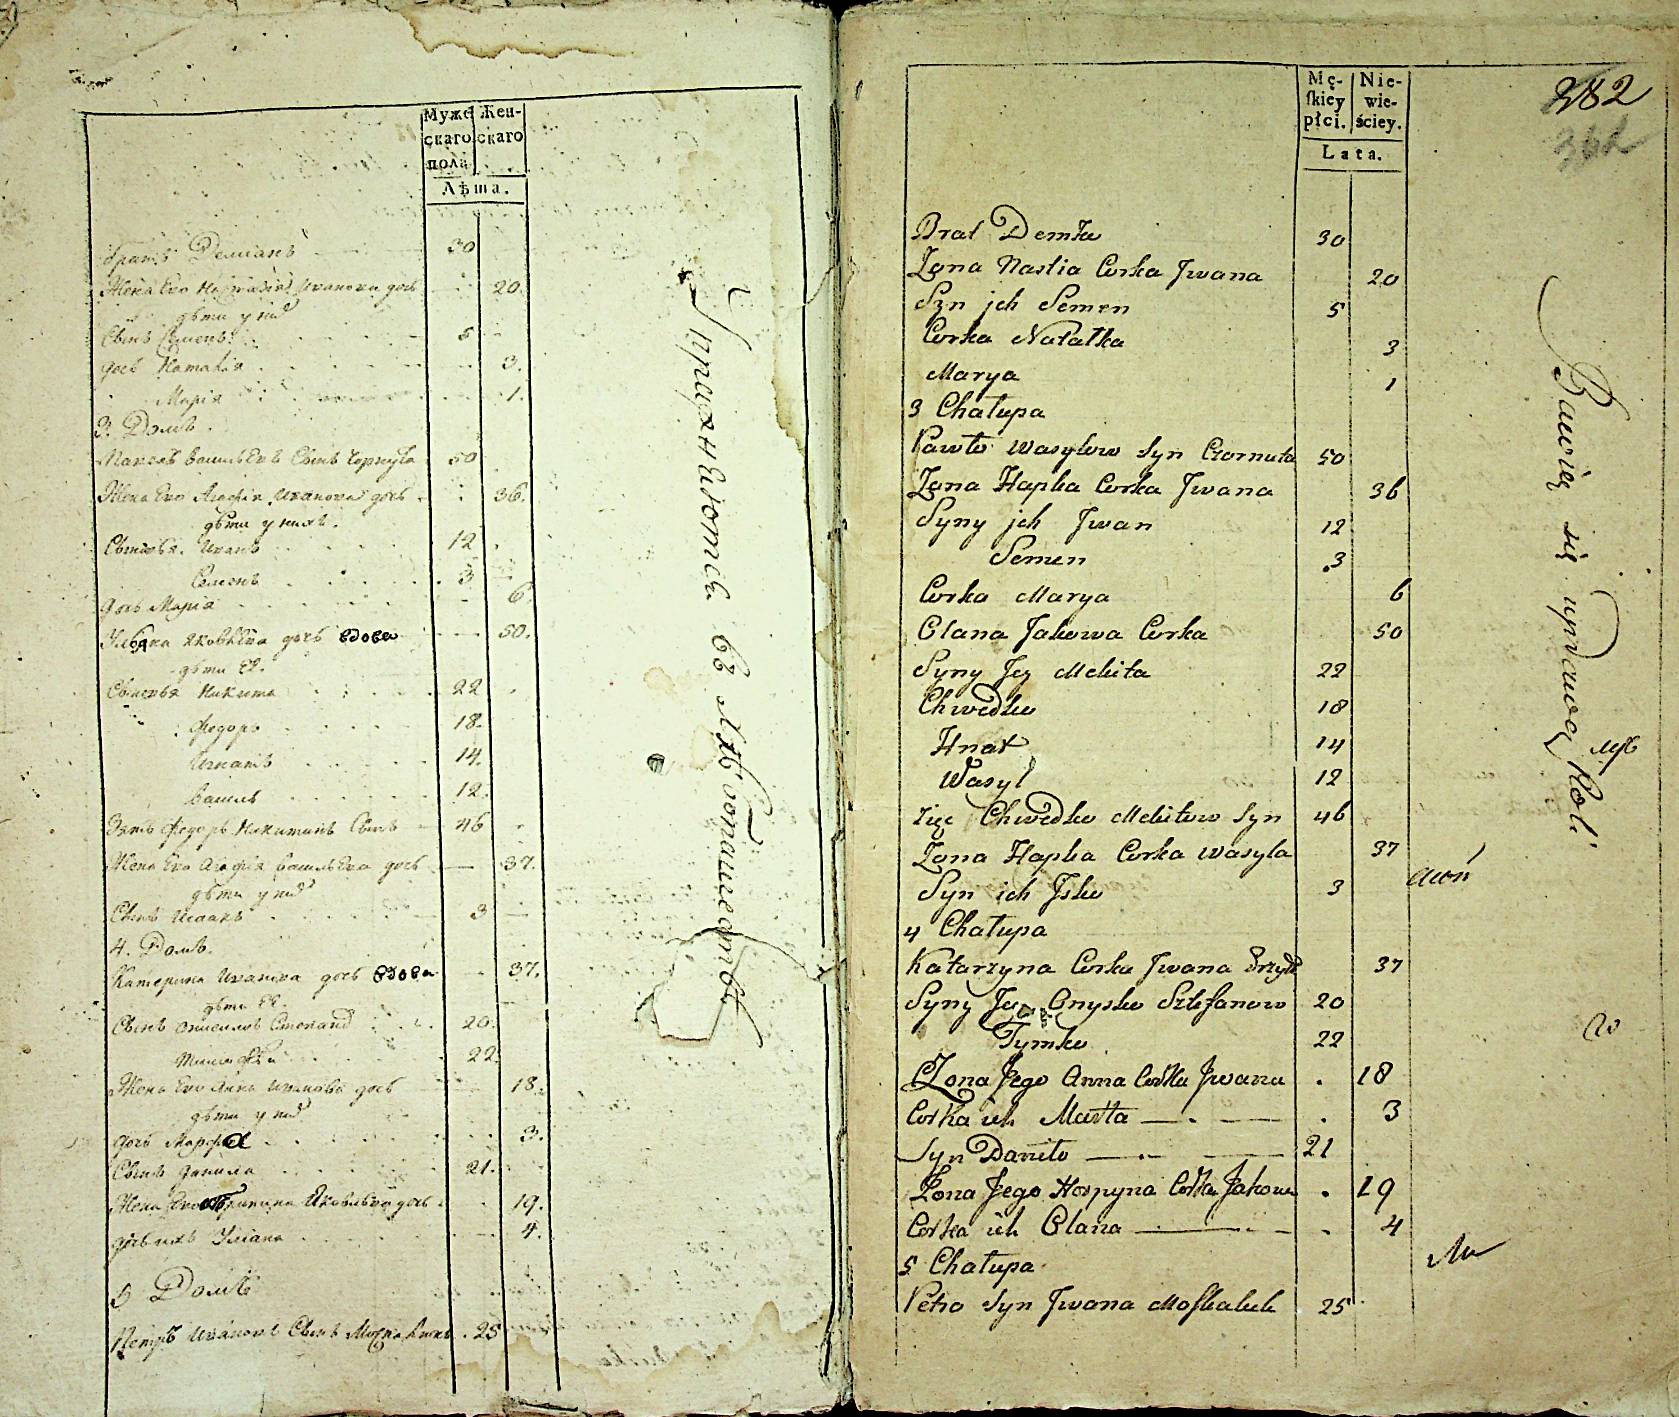 Муже
скаго
пола
Жен-
скаго
Лѣта.
братъ Демианъ 30
Жена Его Настасия Иванова дочь 20.
дѣти у них
Сынъ Семенъ 5
дочь Наталія 3.
Марія 1.
3. Домъ.
Павелъ васильевъ Сынъ Чорнута 50
Жена Его Агафія Иванова дочь 36.
дѣти у нихъ.
Сыновья. Иванъ 12
Семенъ 3
дочь Марія 6.
Ульяна Яковлева дочь вдова 50.
дѣти Ее.
Сыновья Никита 22
Федоръ 18.
Игнатъ 14.
василь 12.
Зять Федоръ Никитинъ Сынъ 46
Жена Его Агафія васильева дочь 37.
дѣти у них
Сынъ Исаакъ 3
4. Домъ.
Катерина Иванова дочь вдова 37.
дѣти Ее.
Сынъ Онисимъ Степанов 20.
Тимофѣй 22.
Жена Его Анна Иванова дочь 18.
дѣти у них
дочь Марфа 3.
Сынъ данила 21.
Жена Его Яковлева дочь 19.
дочь ихъ Уліана 4.
5 Домъ
Петръ Ивановъ Сынъ 25
Упражняются въ Хлѣбопашествѣ
Mę-
skiey
płci.
Nie-
wie-
ściey.
Lata.
282
362
Brat Demko 30
Żona Nastia Corka Jwana 20
Syn jch Semen 5
Corka Natałka 3
Marya 1
3 Chałupa
Pawło Wasylow Syn Czornuta 50
Żona Hapka Corka Jwana 36
Syny jch Jwan 12
Semen 3
Corka Marya 6
Olana Jakowa Corka 50
Syny Jey Mekita 22
Chwedko 18
Hnat 14
Wasyl 12
Zięc Chwedko Mekitow Syn 46
Żona Hapka Corka Wasyla 37
Syn ich Jsko 3
4 Chałupa
Katarzyna Corka Jwana 37
Syny Jey Onysko Sztefanow 20
Tymko 22
Żona Jego Anna Corka Jwana 18
Corka ich Marta 3
Syn Daniło 21
Żona Jego Hospyna Corka Jakowa 19
Corka ich Olana 4
5 Chałupa
Petro Syn Jwana Moskaluk 25
Bawią się uprawą Roli